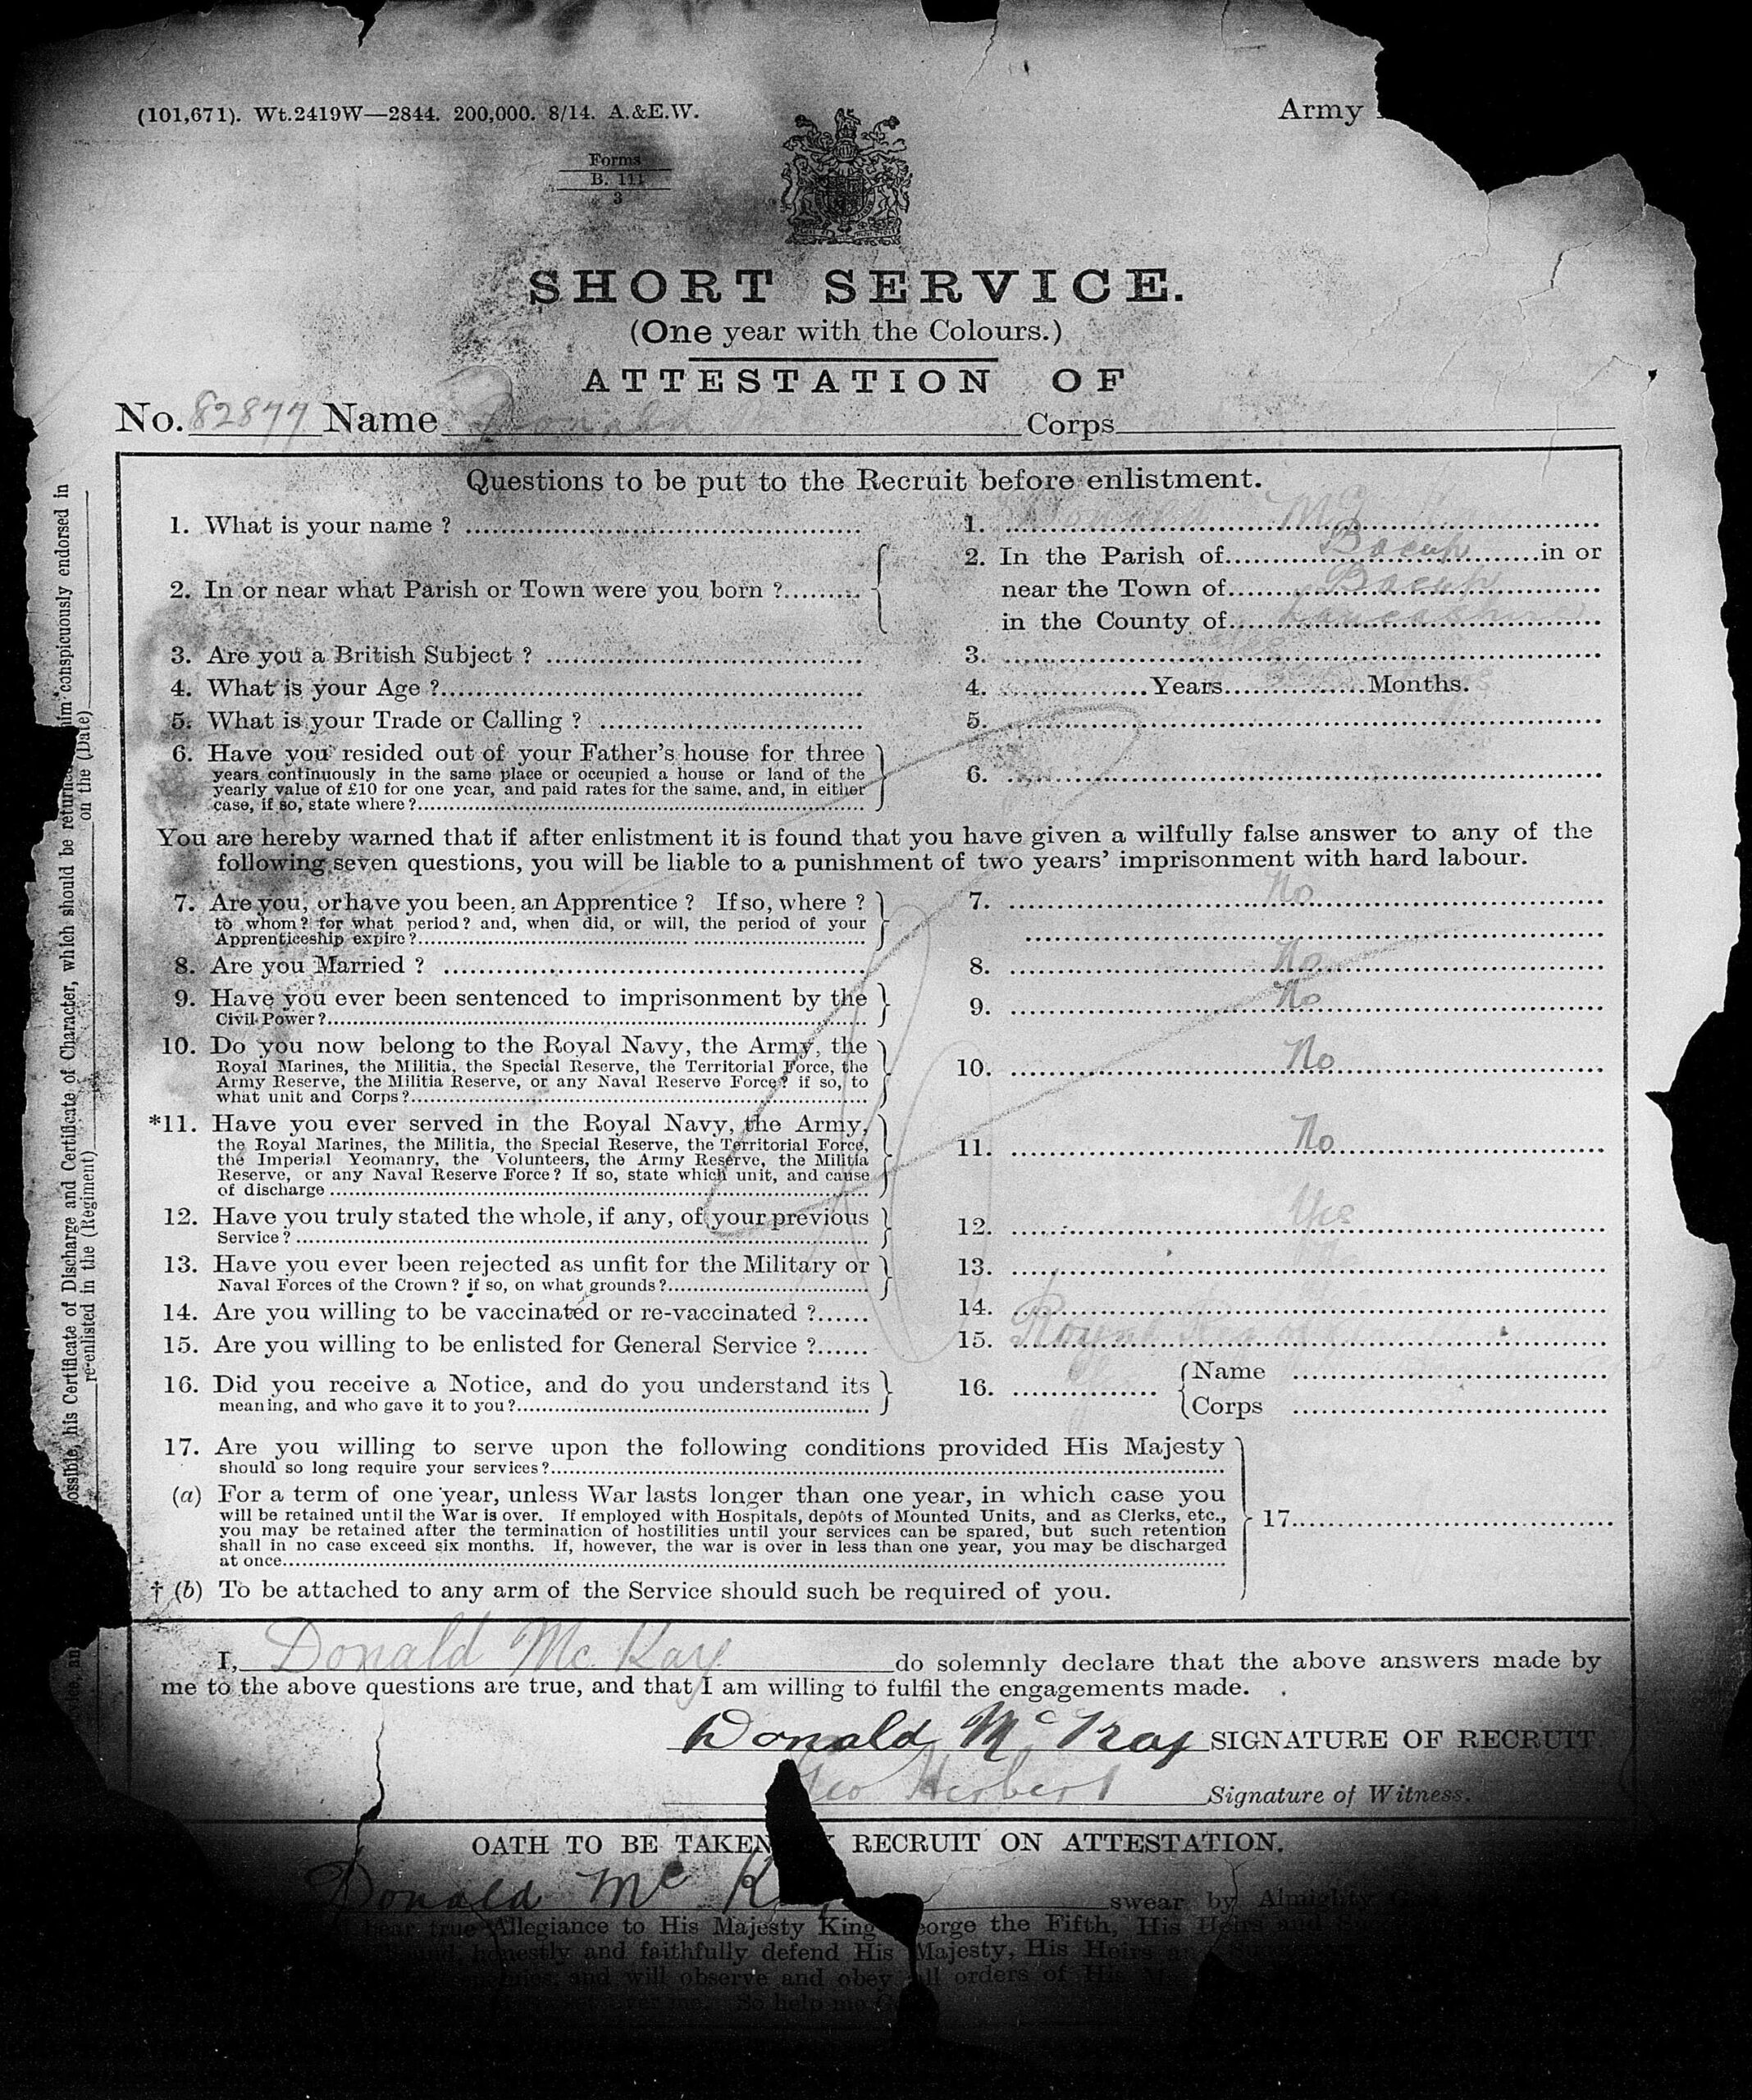 (101,671). Wt.2419W—2844. 200,000. 8/14. A.&E.W.
Army
Forms
B. 111
3
SHORT SERVICE.
(One year with the Colours.)
ATTESTATION OF
No. 82877 Name Donald Corps
Questions to be put to the Recruit before enlistment.
1. What is your name ? 1. Mc
2. In or near what Parish or Town were you born ? 2. In the Parish of Bacup in or
near the Town of Bacup
in the County of Lancashire
3. Are you a British Subject ? 3. Yes
4. What is your Age ? 4. Years Months.
5. What is your Trade or Calling ? 5.
6. Have you resided out of your Father's house for three
years continuously in the same place or occupied a house or land of the
yearly value of £10 for one year, and paid rates for the same, and, in either
case, if so, state where ? 6.
You are hereby warned that if after enlistment it is found that you have given a wilfully false answer to any of the
following seven questions, you will be liable to a punishment of two years' imprisonment with hard labour.
7. Are you, or have you been, an Apprentice ? If so, where ? 7. No
to whom ? for what period ? and, when did, or will, the period of your
Apprenticeship expire ?
8. Are you Married ? 8. No
9. Have you ever been sentenced to imprisonment by the 9. No
Civil Power ?
10. Do you now belong to the Royal Navy, the Army, the
Royal Marines, the Militia, the Special Reserve, the Territorial Force, the 10. No
Army Reserve, the Militia Reserve, or any Naval Reserve Force ? if so, to
what unit and Corps ?
*11. Have you ever served in the Royal Navy, the Army,
the Royal Marines, the Militia, the Special Reserve, the Territorial Force, 11. No
the Imperial Yeomanry, the Volunteers, the Army Reserve, the Militia
Reserve, or any Naval Reserve Force ? If so, state which unit, and cause
of discharge
12. Have you truly stated the whole, if any, of your previous 12. Yes
Service ?
13. Have you ever been rejected as unfit for the Military or 13. No
Naval Forces of the Crown ? if so, on what grounds ?
14. Are you willing to be vaccinated or re-vaccinated ? 14.
15. Are you willing to be enlisted for General Service ? 15.
16. Did you receive a Notice, and do you understand its 16. Yes Name
meaning, and who gave it to you ? Corps
17. Are you willing to serve upon the following conditions provided His Majesty
should so long require your services ?
(a) For a term of one year, unless War lasts longer than one year, in which case you
will be retained until the War is over. If employed with Hospitals, depôts of Mounted Units, and as Clerks, etc., 17.
you may be retained after the termination of hostilities until your services can be spared, but such retention
shall in no case exceed six months. If, however, the war is over in less than one year, you may be discharged
at once
† (b) To be attached to any arm of the Service should such be required of you.
I, Donald Mc Kay do solemnly declare that the above answers made by
me to the above questions are true, and that I am willing to fulfil the engagements made.
Donald Mc Kay SIGNATURE OF RECRUIT
Geo Herbert Signature of Witness.
OATH TO BE TAKEN RECRUIT ON ATTESTATION.
Donald Mc K swear by Almighty
bear true Allegiance to His Majesty King George the Fifth, His Heirs and
honestly and faithfully defend His Majesty, His Heirs
and will observe and obey all orders of His
So help me
his Certificate of Discharge and Certificate of Character, which should be returned to him conspicuously endorsed in
re-enlisted in the (Regiment) on the (Date)